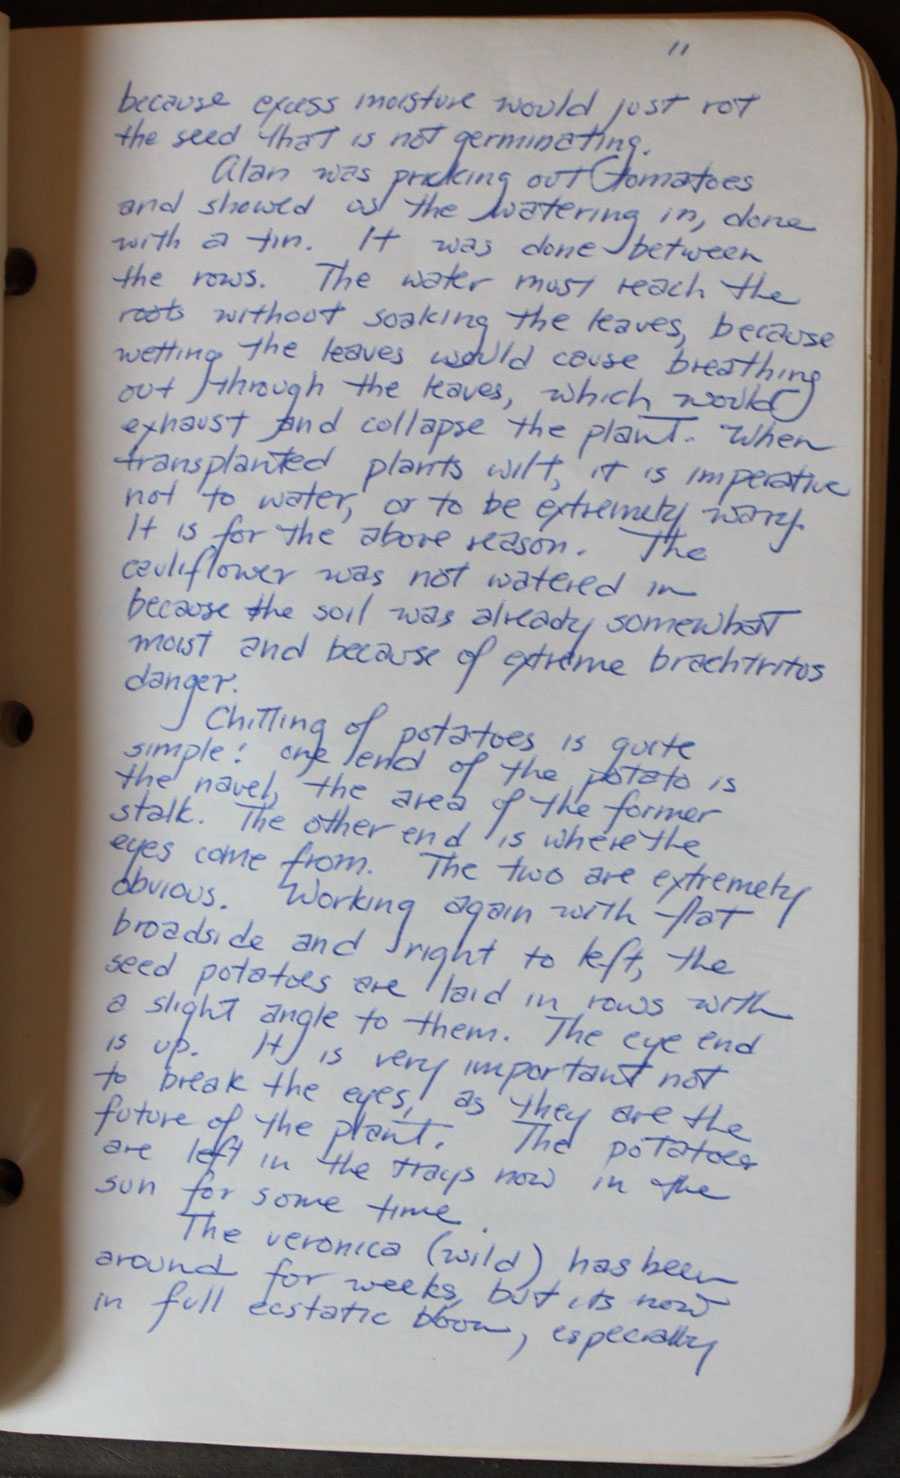 11
because excess moisture would just rot
the seed that is not germinating.
Alan was pricking out tomatoes
and showed us the watering in, done
with a tin. It was done between
the rows. The water must reach the
roots without soaking the leaves, because
wetting the leaves would cause breathing
out through the leaves, which would
exhaust and collapse the plant. When
transplanted plants wilt, it is imperative
not to water, or to be extremely wary.
It is for the above reason. The
cauliflower was not watered in
because the soil was already somewhat
moist and because of extreme brachtritos
danger.
Chitting of potatoes is quite
simple: one end of the potato is
the navel, the area of the former
stalk. The other end is where the
eyes come from. The two are extremely
obvious. Working again with flat
broadside and right to left, the
seed potatoes are laid in rows with
a slight angle to them. The eye end
is up. It is very important not
to break the eyes, as they are the
future of the plant. The potatoes
are left in the trays now in the
sun for some time.
The veronica (wild) has been
around for weeks, but its now
in full ecstatic bloom, especially